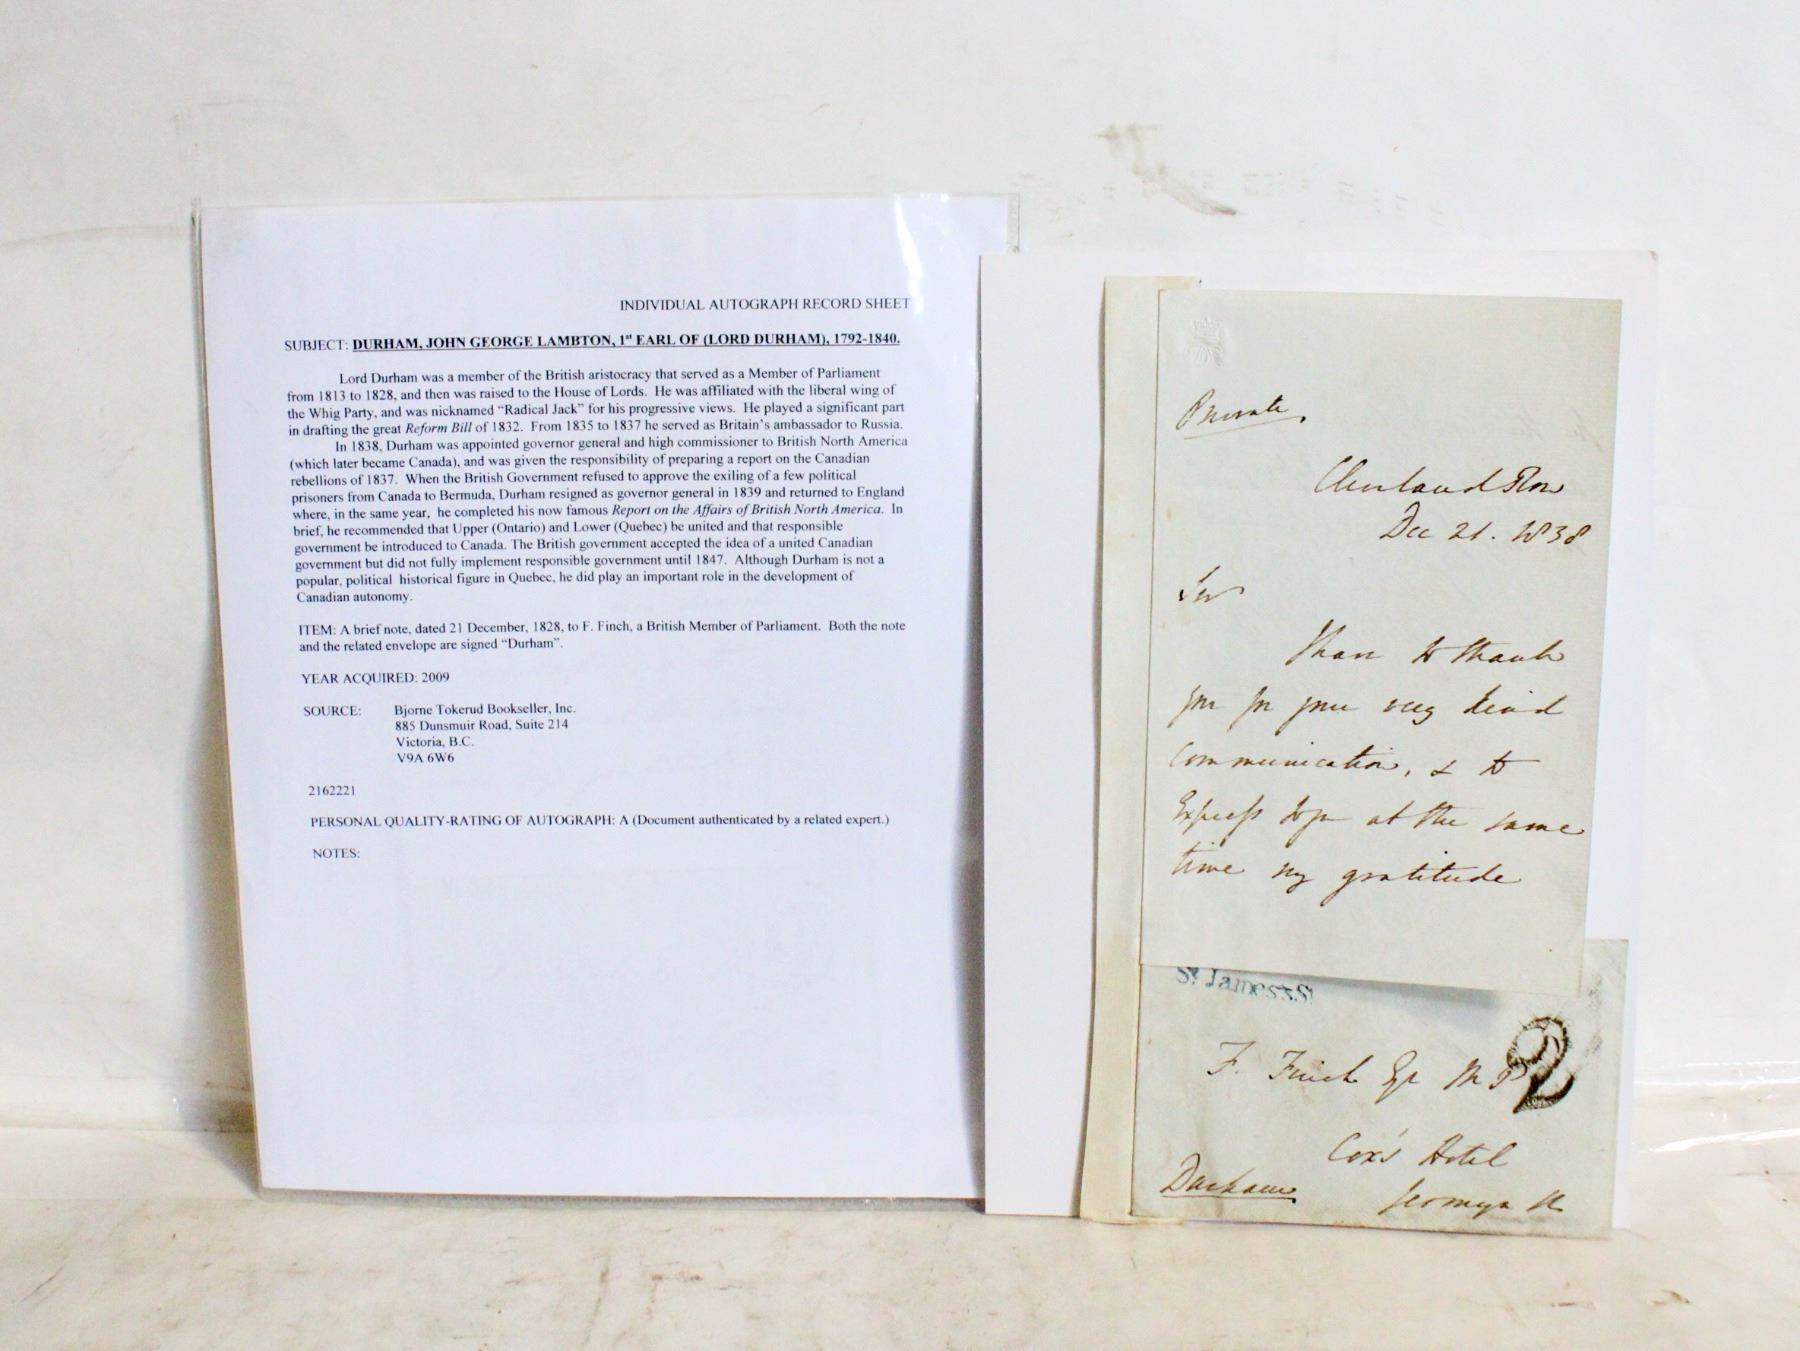 INDIVIDUAL AUTOGRAPH RECORD SHEET
SUBJECT: DURHAM, JOHN GEORGE LAMBTON, 1st EARL OF (LORD DURHAM), 1792-1840.
Lord Durham was a member of the British aristocracy that served as a Member of Parliament
from 1813 to 1828, and then was raised to the House of Lords. He was affiliated with the liberal wing of
the Whig Party, and was nicknamed “Radical Jack” for his progressive views. He played a significant part
in drafting the great Reform Bill of 1832. From 1835 to 1837 he served as Britain’s ambassador to Russia.
In 1838, Durham was appointed governor general and high commissioner to British North America
(which later became Canada), and was given the responsibility of preparing a report on the Canadian
rebellions of 1837. When the British Government refused to approve the exiling of a few political
prisoners from Canada to Bermuda, Durham resigned as governor general in 1839 and returned to England
where, in the same year, he completed his now famous Report on the Affairs of British North America. In
brief, he recommended that Upper (Ontario) and Lower (Quebec) be united and that responsible
government be introduced to Canada. The British government accepted the idea of a united Canadian
government but did not fully implement responsible government until 1847. Although Durham is not a
popular, political historical figure in Quebec, he did play an important role in the development of
Canadian autonomy.
ITEM: A brief note, dated 21 December, 1828, to F. Finch, a British Member of Parliament. Both the note
and the related envelope are signed “Durham”.
YEAR ACQUIRED: 2009
SOURCE: Bjorne Tokerud Bookseller, Inc.
885 Dunsmuir Road, Suite 214
Victoria, B.C.
V9A 6W6
2162221
PERSONAL QUALITY-RATING OF AUTOGRAPH: A (Document authenticated by a related expert.)
NOTES:
Private
Cleveland Row
Dec 21. 1838
Sir
I have to thank
you for your very kind
communication, & to
Express to you at the same
time my gratitude
St James's St
F. Finch Esqr M P
2
Cox's Hotel
Durham
Jermyn St